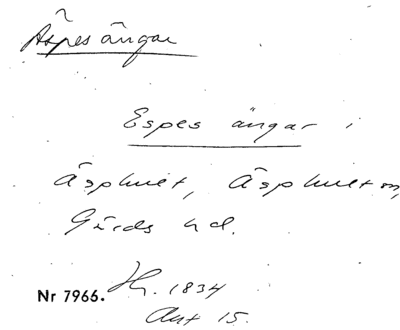 Äspes ängar
Espes ängar i
Äsphult, Äsphult sn,
Gärds hd.
Nr 7966. Hr. 1834
Akt 15.